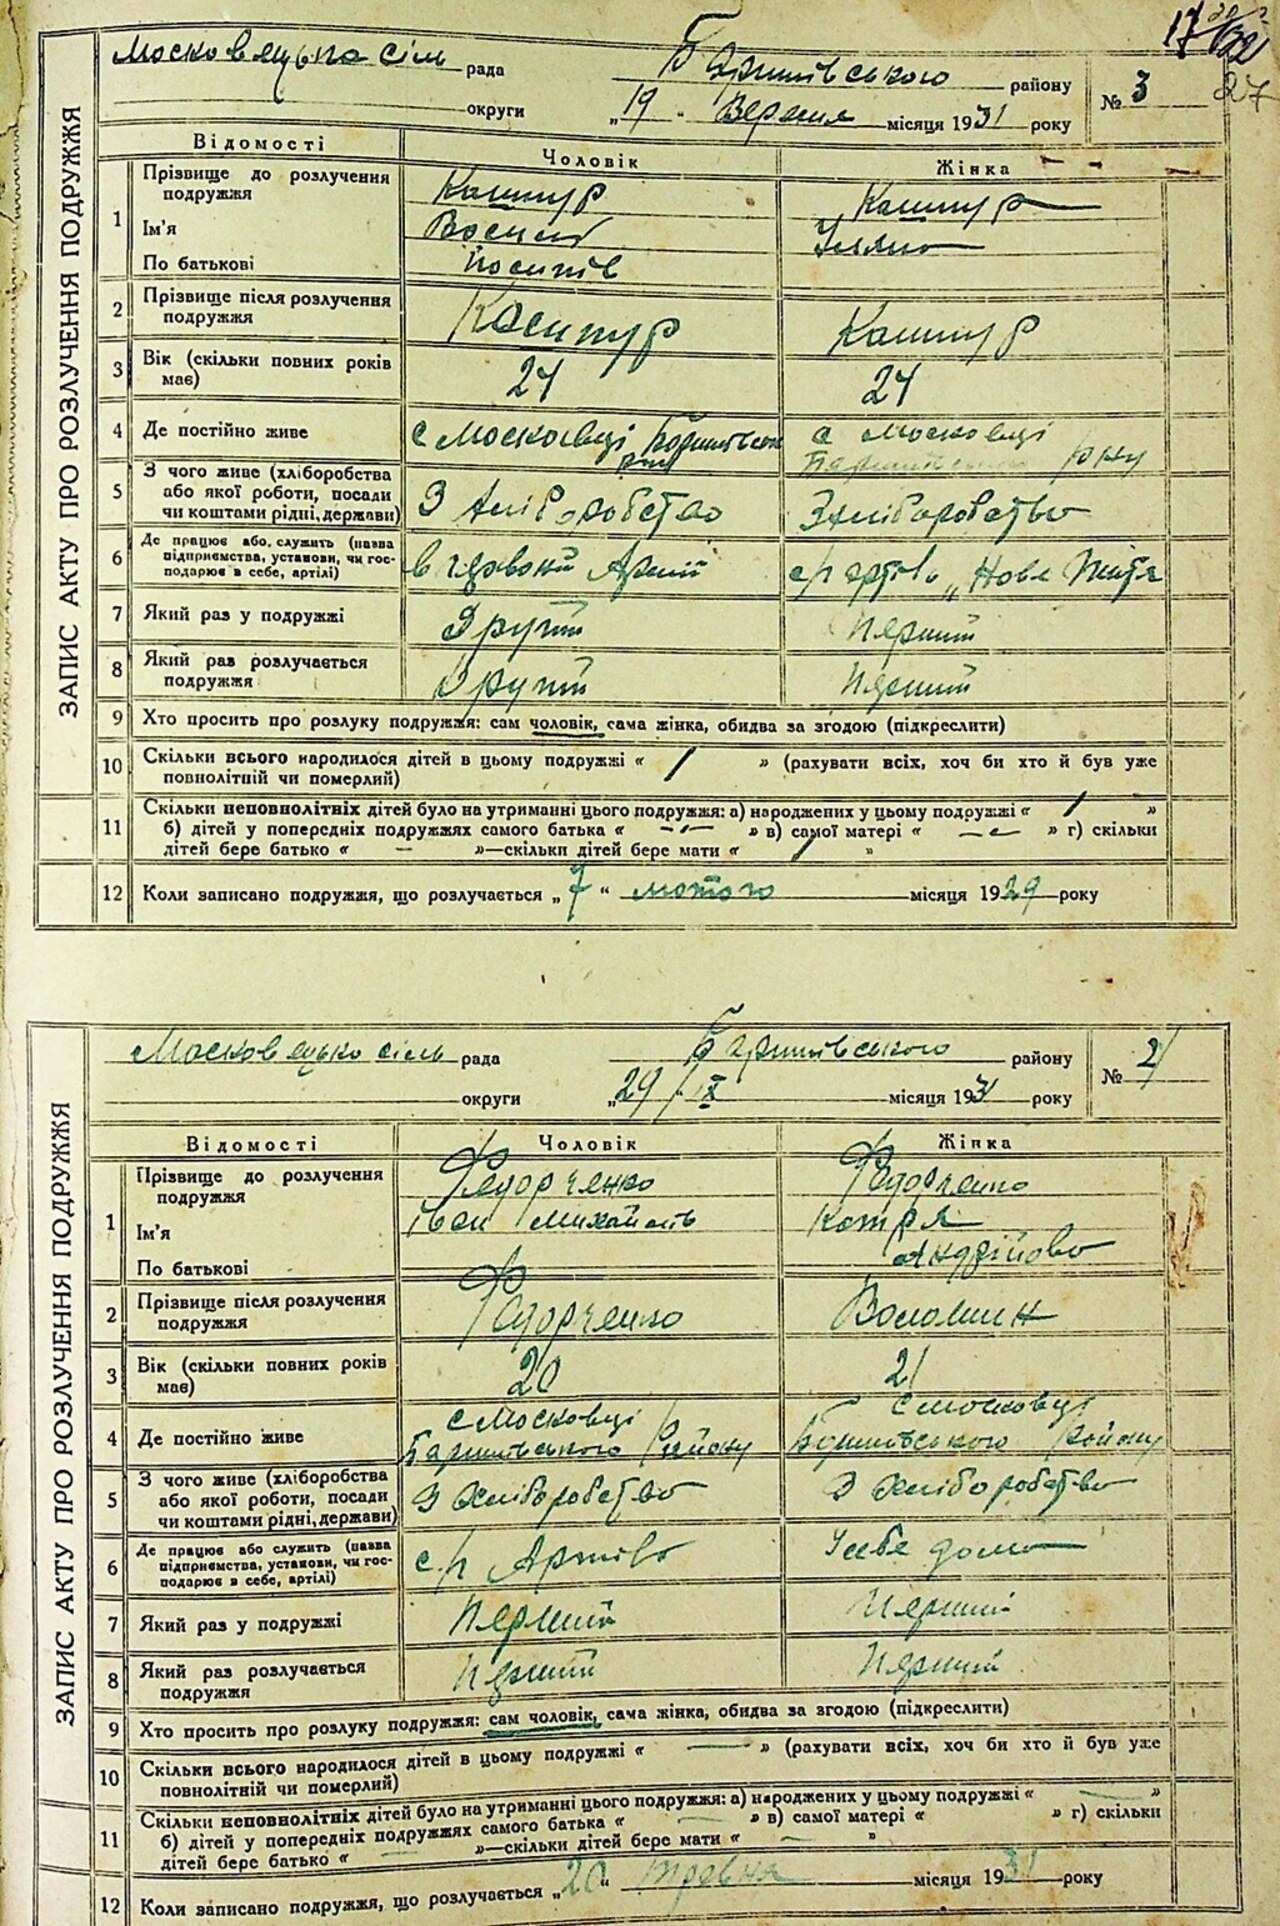 17
27
ЗАПИС АКТУ ПРО РОЗЛУЧЕННЯ ПОДРУЖЖЯ
Московецька сіль рада Баришівського району № 3
округи „19" Вересня місяця 1931 року
Відомості Чоловік Жінка
1 Прізвище до розлучення подружжя Кашпур Кашпур
Ім'я Василь Уляна
По батькові Йосипів
2 Прізвище після розлучення подружжя Кашпур Кашпур
3 Вік (скільки повних років має) 24 24
4 Де постійно живе с Московці Баришівськ р-ну с Московці Баришівськ р-ну
5 З чого живе (хліборобства або якої роботи, посади чи коштами рідні, держави) З хліборобство З хліборобство
6 Де працює або служить (назва підприємства, установи, чи господарює в себе, артілі) в червоній Армії с/г артіль „Нове Життя
7 Який раз у подружжі Другий Перший
8 Який раз розлучається подружжя Другий Перший
9 Хто просить про розлуку подружжя: сам чоловік, сама жінка, обидва за згодою (підкреслити)
10 Скільки всього народилося дітей в цьому подружжі « 1 » (рахувати всіх, хоч би хто й був уже
повнолітній чи померлий)
11 Скільки неповнолітніх дітей було на утриманні цього подружжя: а) народжених у цьому подружжі « 1 »
б) дітей у попередніх подружжях самого батька « — » в) самої матері « — » г) скільки
дітей бере батько « — »—скільки дітей бере мати « 1 »
12 Коли записано подружжя, що розлучається „7" лютого місяця 1929 року
ЗАПИС АКТУ ПРО РОЗЛУЧЕННЯ ПОДРУЖЖЯ
Московецько сіль рада Баришівського району №
округи „29/ІХ місяця 1931 року
Відомості Чоловік Жінка
1 Прізвище до розлучення подружжя Федорченко Федорченко
Ім'я Іван Михайлів Катря
По батькові Андрійова
2 Прізвище після розлучення подружжя Федорченко Волошин
3 Вік (скільки повних років має) 20 21
4 Де постійно живе с Московці Баришівського Району с Московці Баришівського Району
5 З чого живе (хліборобства або якої роботи, посади чи коштами рідні, держави) З хліборобство З хліборобство
6 Де працює або служить (назва підприємства, установи, чи господарює в себе, артілі) с/г Артіль У себе дома
7 Який раз у подружжі Перший Перший
8 Який раз розлучається подружжя Перший Перший
9 Хто просить про розлуку подружжя: сам чоловік, сама жінка, обидва за згодою (підкреслити)
10 Скільки всього народилося дітей в цьому подружжі « — » (рахувати всіх, хоч би хто й був уже
повнолітній чи померлий)
11 Скільки неповнолітніх дітей було на утриманні цього подружжя: а) народжених у цьому подружжі « — »
б) дітей у попередніх подружжях самого батька « — » в) самої матері « » г) скільки
дітей бере батько « — »—скільки дітей бере мати « — »
12 Коли записано подружжя, що розлучається „20" травня місяця 1931 року